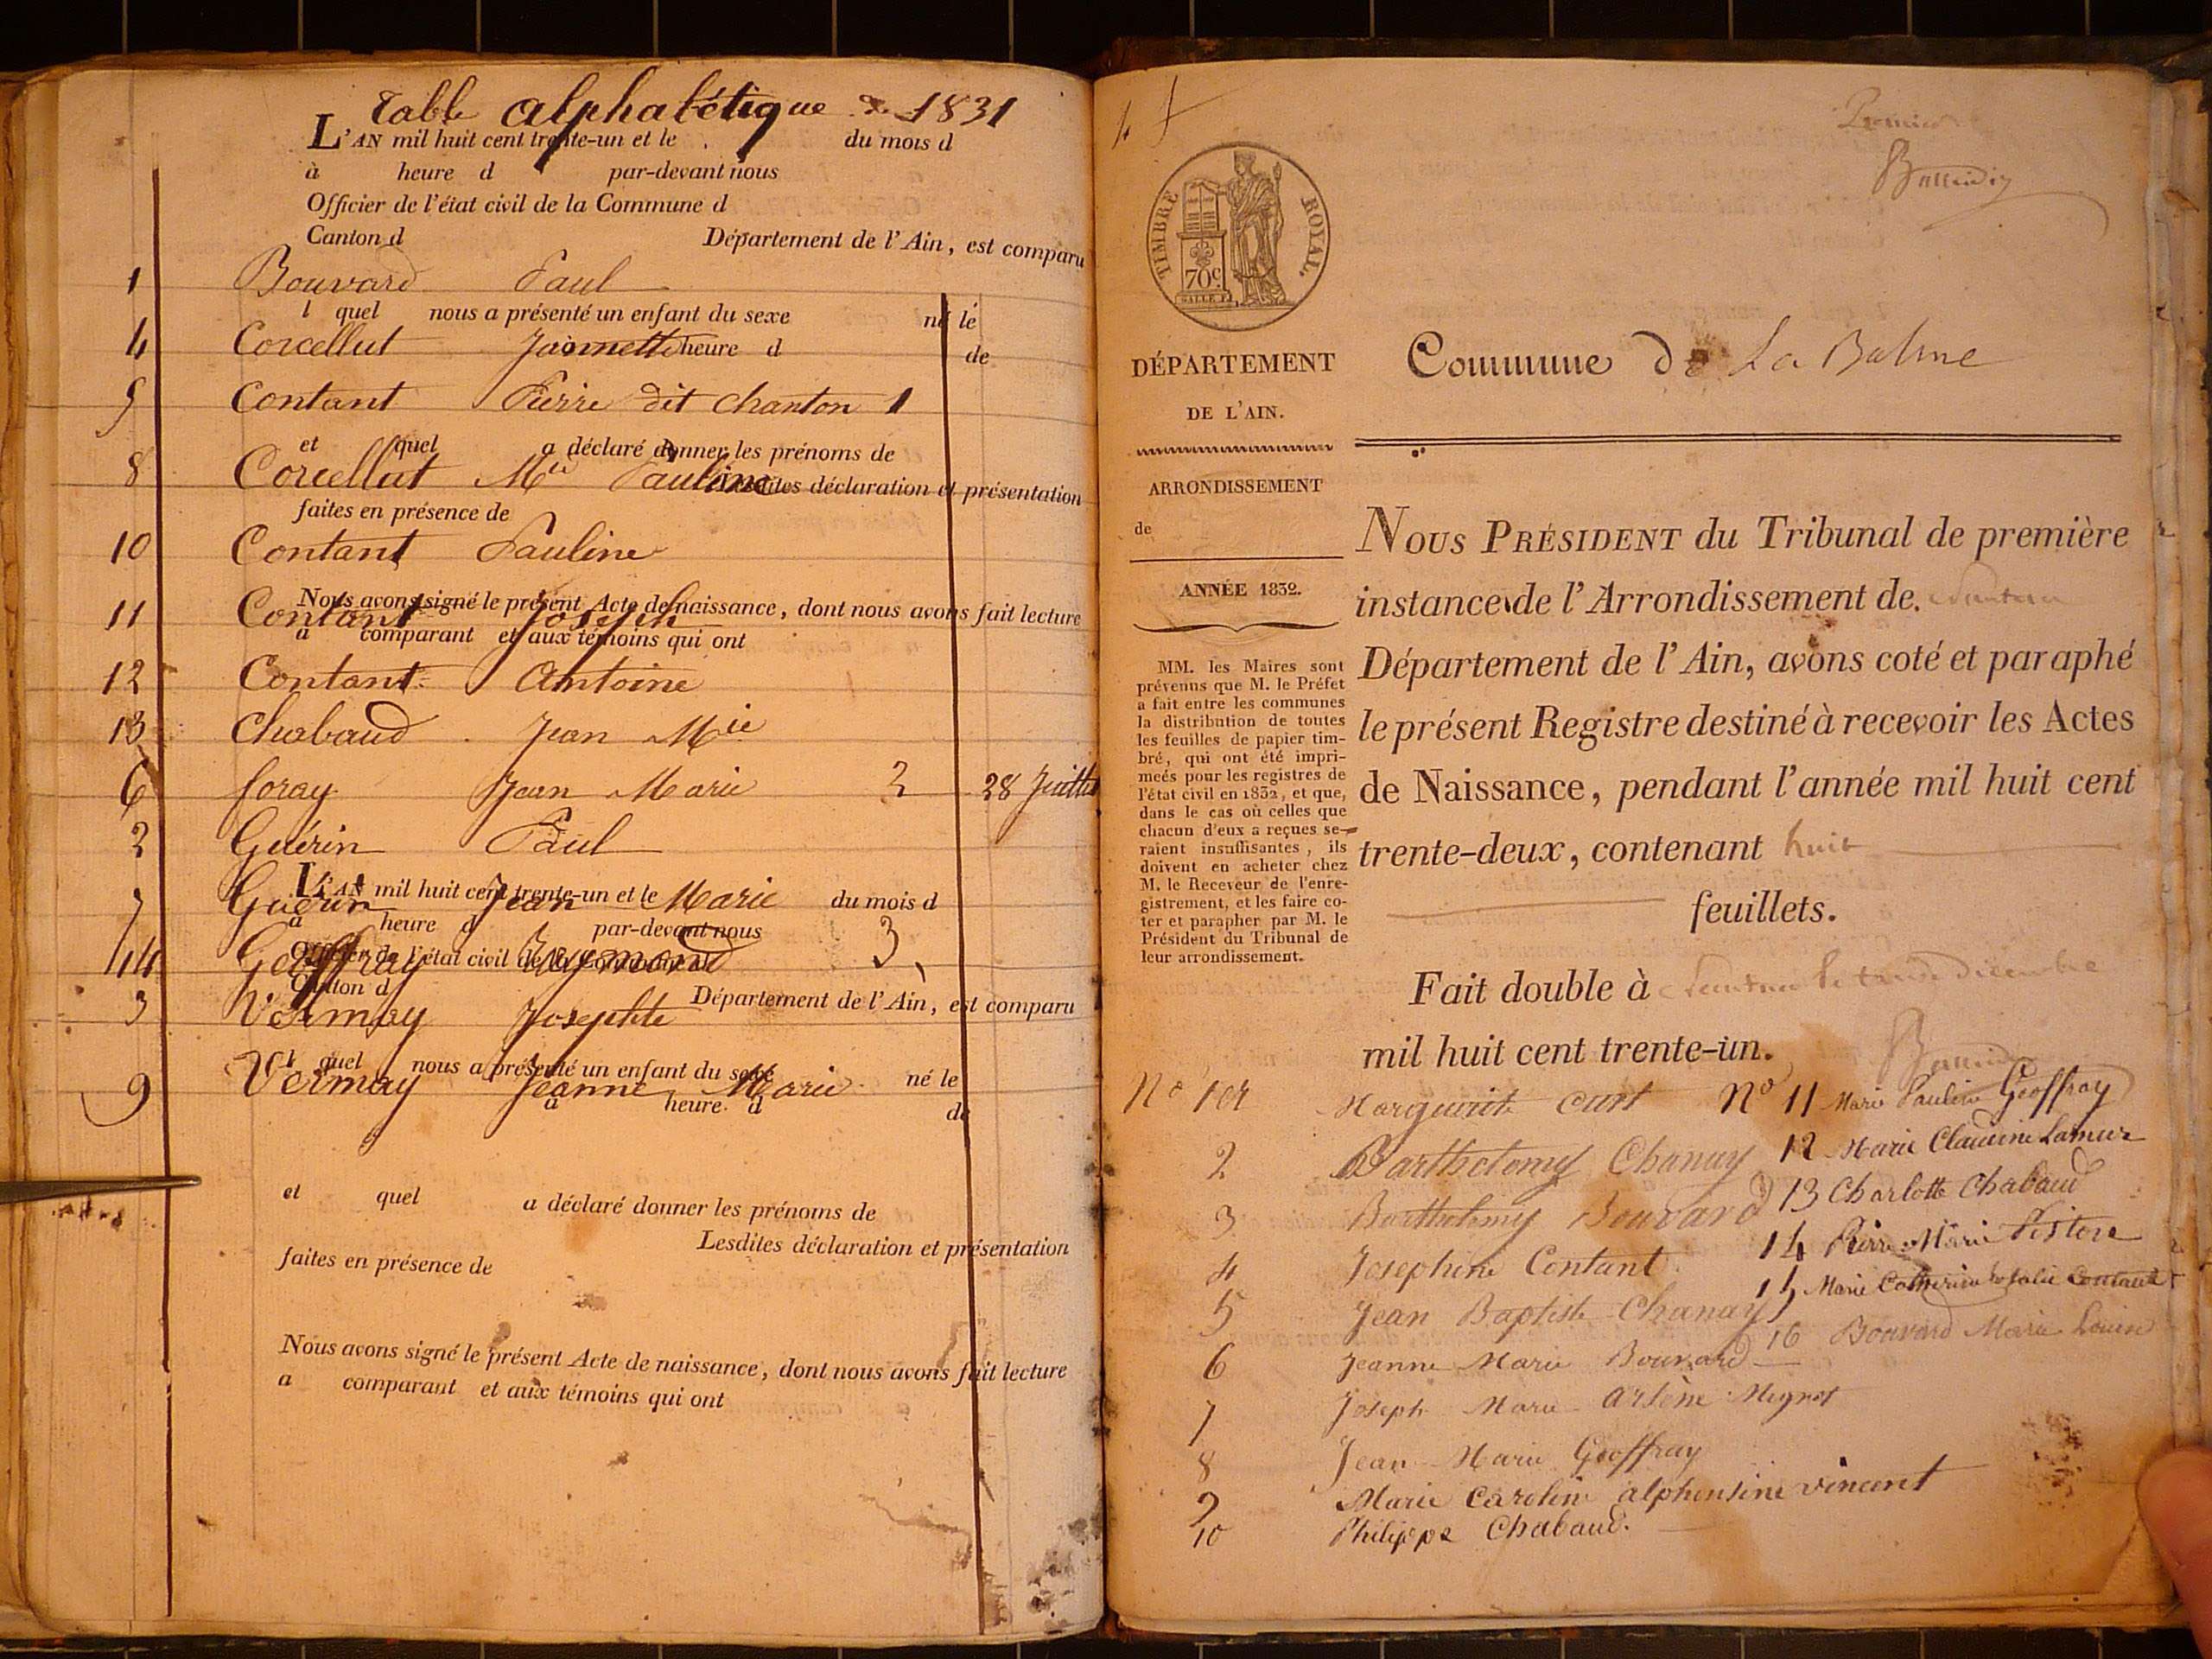 Table alphabétique de 1831
L'AN mil huit cent trente-un et le du mois d
à heure d par-devant nous
Officier de l'état civil de la Commune d
Canton d Département de l'Ain, est comparu
1 Bouvard Paul
l quel nous a présenté un enfant du sexe né le
4 Corcellut Jeannette heure d de
5 Contant Pierre dit Chanton 1
et quel a déclaré donner les prénoms de
8 Corcellut Mie Pauline Lesdites déclaration et présentation
faites en présence de
10 Contant Pauline
Nous avons signé le présent Acte de naissance, dont nous avons fait lecture
11 Contant Joseph
a comparant et aux témoins qui ont
12 Contant Antoine
13 Chabaud Jean Mie
6 foray Jean Marie 2 28 Juillet
2 Guérin Paul
L'AN mil huit cent trente-un et le du mois d
7 Guérin Jean Marie
à heure d par-devant nous
Officier de l'état civil de la Commune d
14 Geoffray Raymond 3
Canton d Département de l'Ain, est comparu
3 Vermay Josephte
l quel nous a présenté un enfant du sexe né le
9 Vermay Jeanne Marie
à heure d de
et quel a déclaré donner les prénoms de
Lesdites déclaration et présentation
faites en présence de
Nous avons signé le présent Acte de naissance, dont nous avons fait lecture
a comparant et aux témoins qui ont
TIMBRE ROYAL.
70c.
DÉPARTEMENT
DE L'AIN.
ARRONDISSEMENT
de
ANNÉE 1832.
MM. les Maires sont
prévenus que M. le Préfet
a fait entre les communes
la distribution de toutes
les feuilles de papier tim-
bré, qui ont été impri-
meés pour les registres de
l'état civil en 1832, et que,
dans le cas où celles que
chacun d'eux a reçues se-
raient insuffisantes, ils
doivent en acheter chez
M. le Receveur de l'enre-
gistrement, et les faire co-
ter et parapher par M. le
Président du Tribunal de
leur arrondissement.
Premier
Commune de La Balme
NOUS PRÉSIDENT du Tribunal de première
instance de l'Arrondissement de Nantua
Département de l'Ain, avons coté et paraphé
le présent Registre destiné à recevoir les Actes
de Naissance, pendant l'année mil huit cent
trente-deux, contenant huit
feuillets.
Fait double à Nantua le treize Décembre
mil huit cent trente-un.
No 1er Marguerite Curt
2 Barthelemy Chanay
3 Barthelemy Bouvard
4 Josephine Contant
5 Jean Baptiste Chanay
6 Jeanne Marie Bouvard
7 Joseph Marie Arsène Mignot
8 Jean Marie Geoffray
9 Marie Caroline alphonsine vincent
10 Philippe Chabaud.
No 11 Marie Pauline Geoffray
12 Marie Claudine Lamure
13 Charlotte Chabaud
14 Pierre Marie Pistore
15 Marie Catherine Rosalie Contant
16 Bouvard Marie Louise